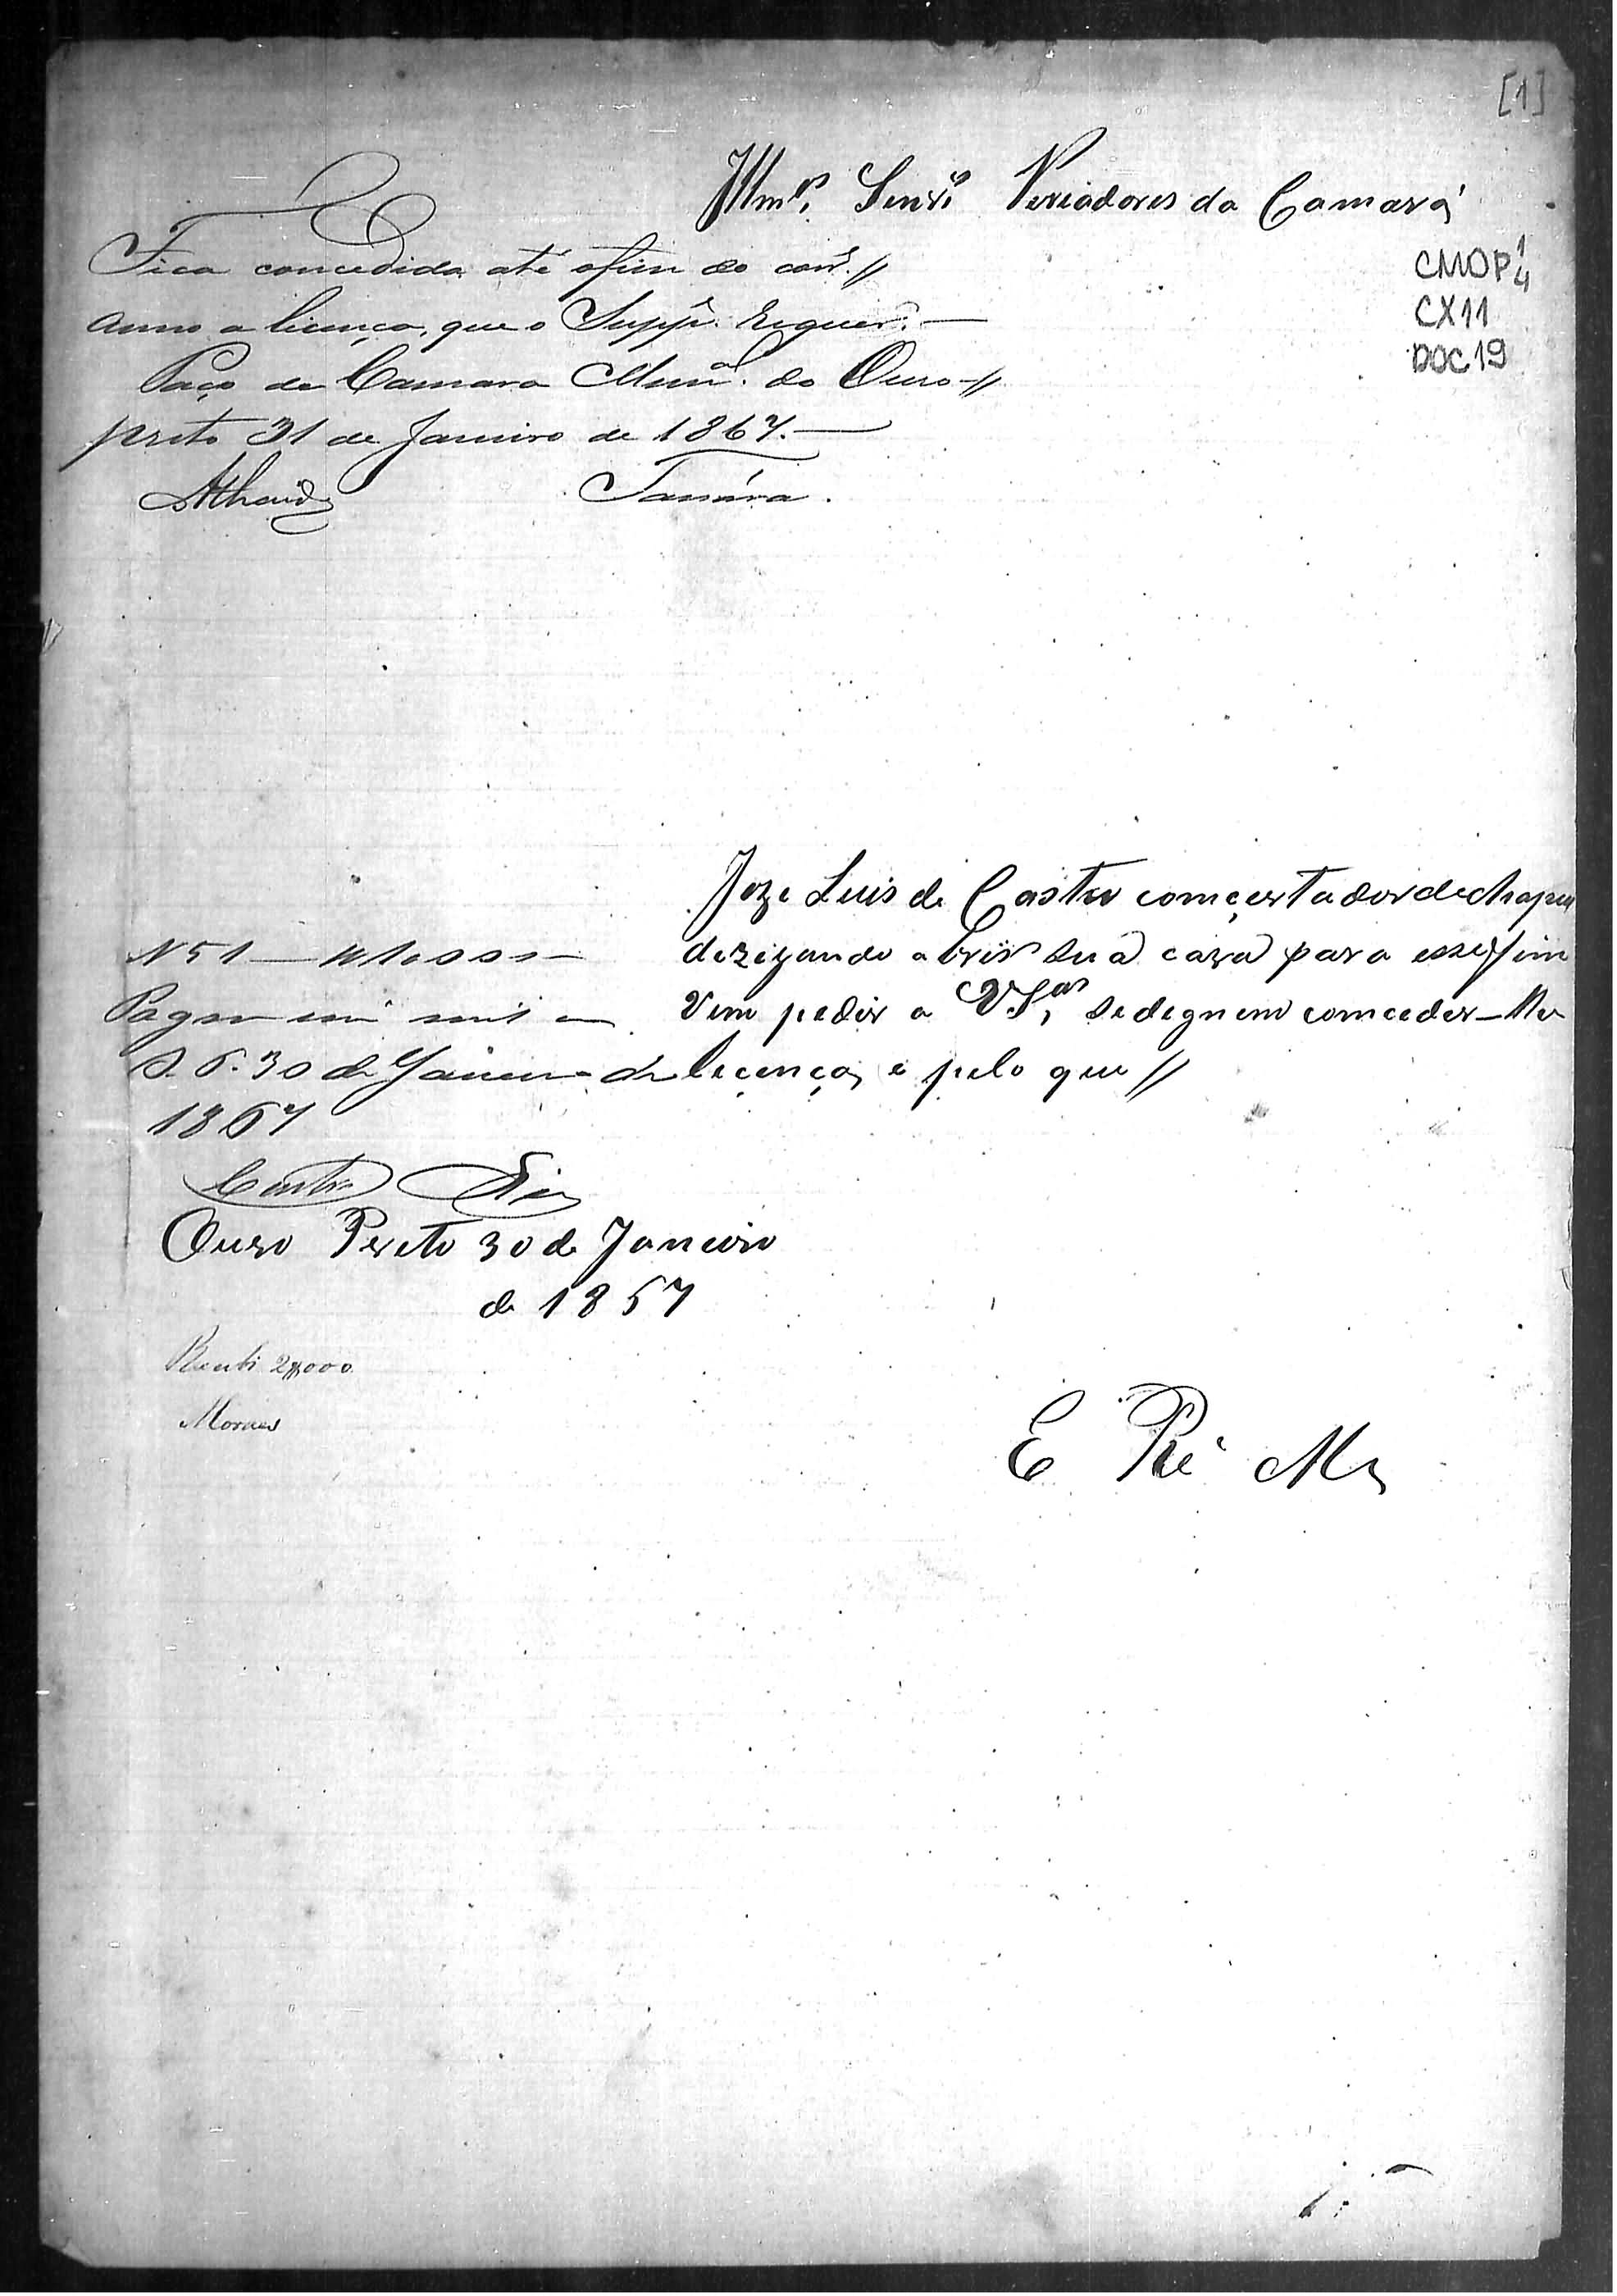 [1]
Illmos. Senrs. Veriadores da Camara
CMOP 1/4
CX11
DOC19
Fica concedida até o fim do corre. //
anno a licença, que o Suppe. requer. —
Paço da Camara Munal. do Ouro //
preto 31 de Janeiro de 1867. —
Joze Luis de Castro comçertador de chapeu
dezejando abrir sua caza para esse fim
Vem pedir a VSas, se degnem comceder-lhe
licença, e pelo que //
N 51 — 1000 —
Pagou mil
O. P. 30 de Janeiro de
1867
Castro Dias
Ouro Preto 30 de Janeiro
de 1867
Recebi 2$000
Moraes
E Re Me